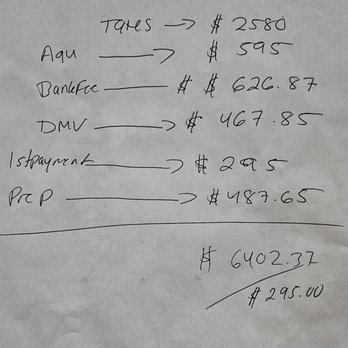 Taxes → $ 2580
Aqu → $ 595
BankFee → $ $ 626.87
DMV → $ 467.85
1stpayment → $ 295
Prep → $487.65
$ 6402.37
$295.00